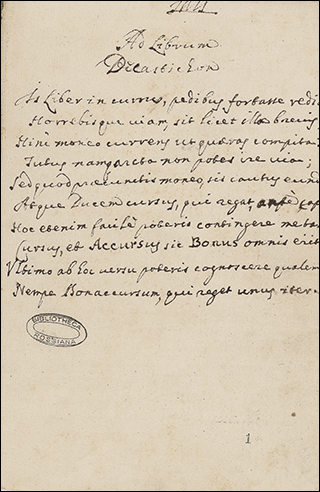 Ad Librum
Decastichon
Is Liber in cursu, pedibus fortasse redi
Horrebisque viam, sit licet illa brevis
Hinc moneo currens ut quæras compita
Tutus nam non potes ire via;
Sed quod moneo, sis cautus
Atque Ducem cursus, qui regat, ante
Hoc etenim facilè poteris contingere meta
Cursus, et Accursus sic Bonus omnis erit
Ultimo ab hoc versu poteris cognoscere qualem
Nempe Bonaccursum, qui reget unus iter.
BIBLIOTHECA
ROSSIANA
1